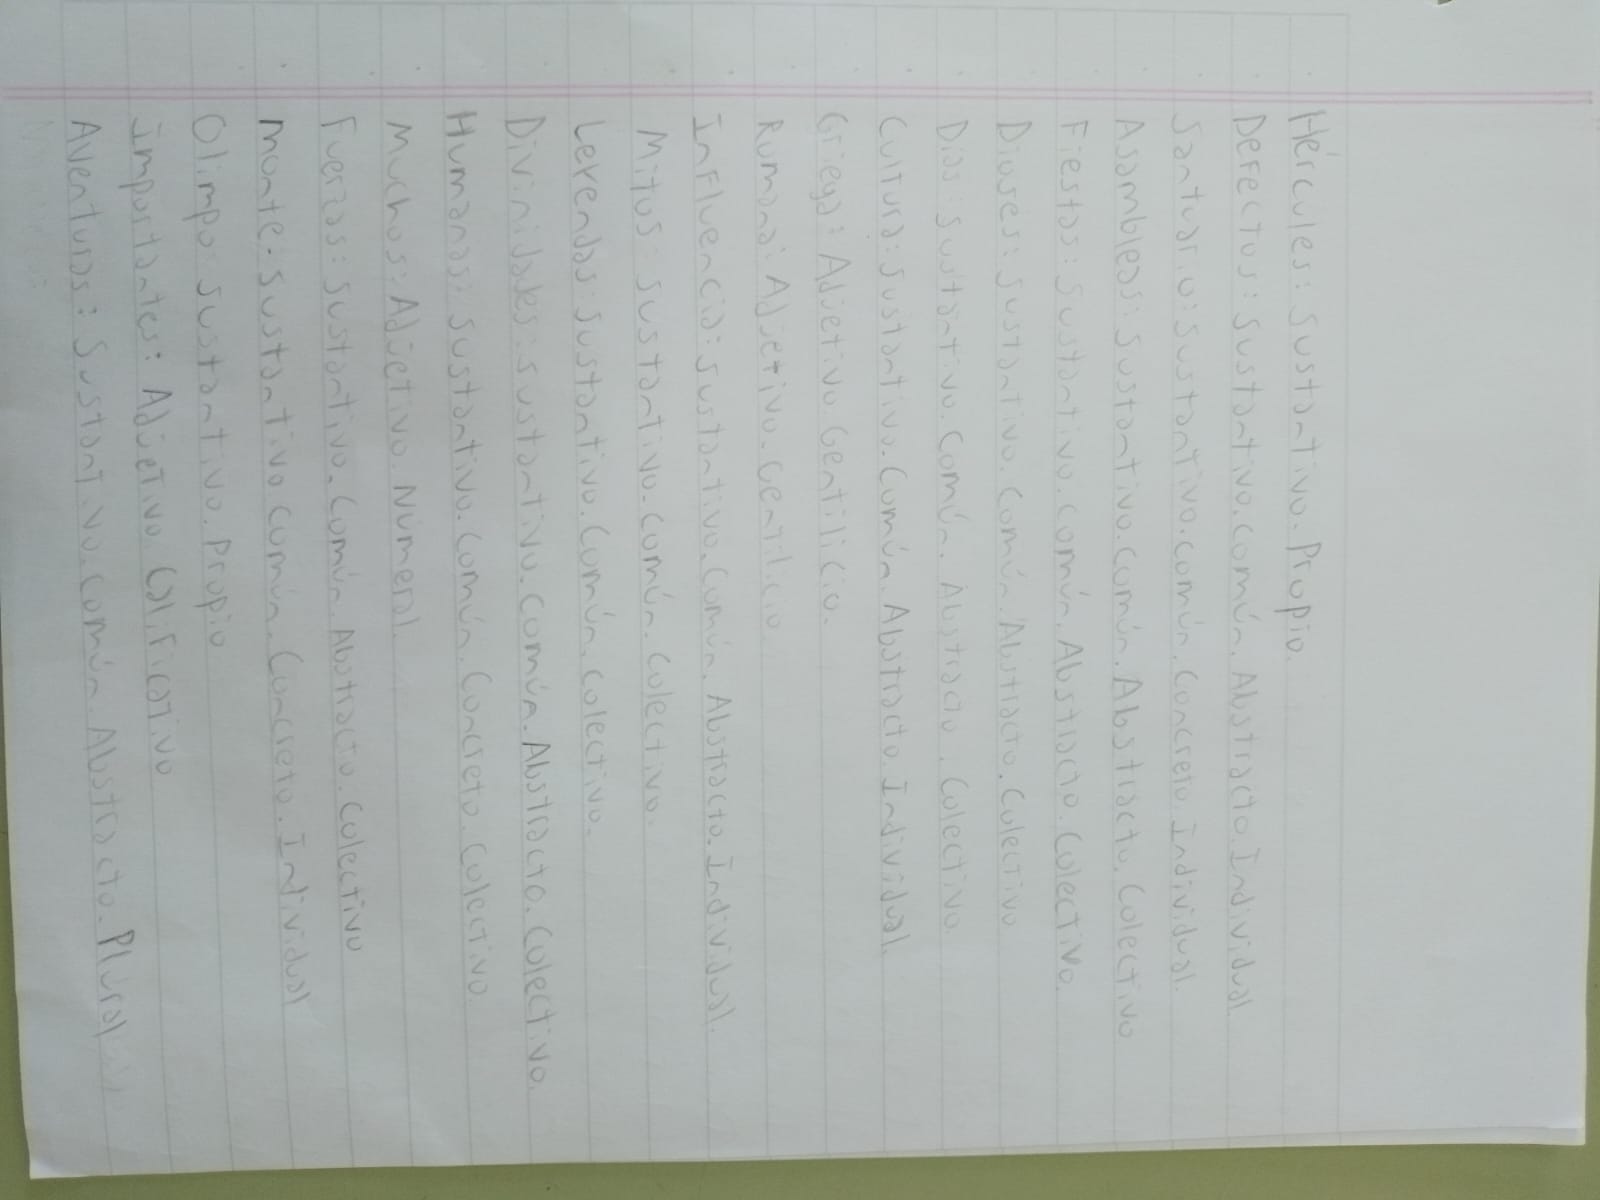 Hércules: Sustantivo. Propio.
Defectos: Sustantivo. Común. Abstracto. Individual.
Santuario: Sustantivo. Común. Concreto. Individual.
Asambleas: Sustantivo. Común. Abstracto. Colectivo
Fiestas: Sustantivo. Común. Abstracto. Colectivo.
Dioses: Sustantivo. Común. Abstracto. Colectivo
Días: Sustantivo. Común. Abstracto. Colectivo.
Cultura: Sustantivo. Común. Abstracto. Individual.
Griega: Adjetivo. Gentilicio.
Romana: Adjetivo. Gentilicio
Influencia: Sustantivo. Común. Abstracto. Individual.
Mitos: Sustantivo. Común. Colectivo.
Leyendas: Sustantivo. Común. Colectivo.
Divinidades: Sustantivo. Común. Abstracto. Colectivo.
Humanas: Sustantivo. Común. Concreto. Colectivo.
Muchos: Adjetivo. Númeral.
Fuerzas: Sustantivo. Común. Abstracto. Colectivo
Monte: Sustantivo. Común. Concreto. Individual
Olimpo: Sustantivo. Propio
Importantes: Adjetivo. Calificativo
Aventuras: Sustantivo. Común. Abstracto. Plural